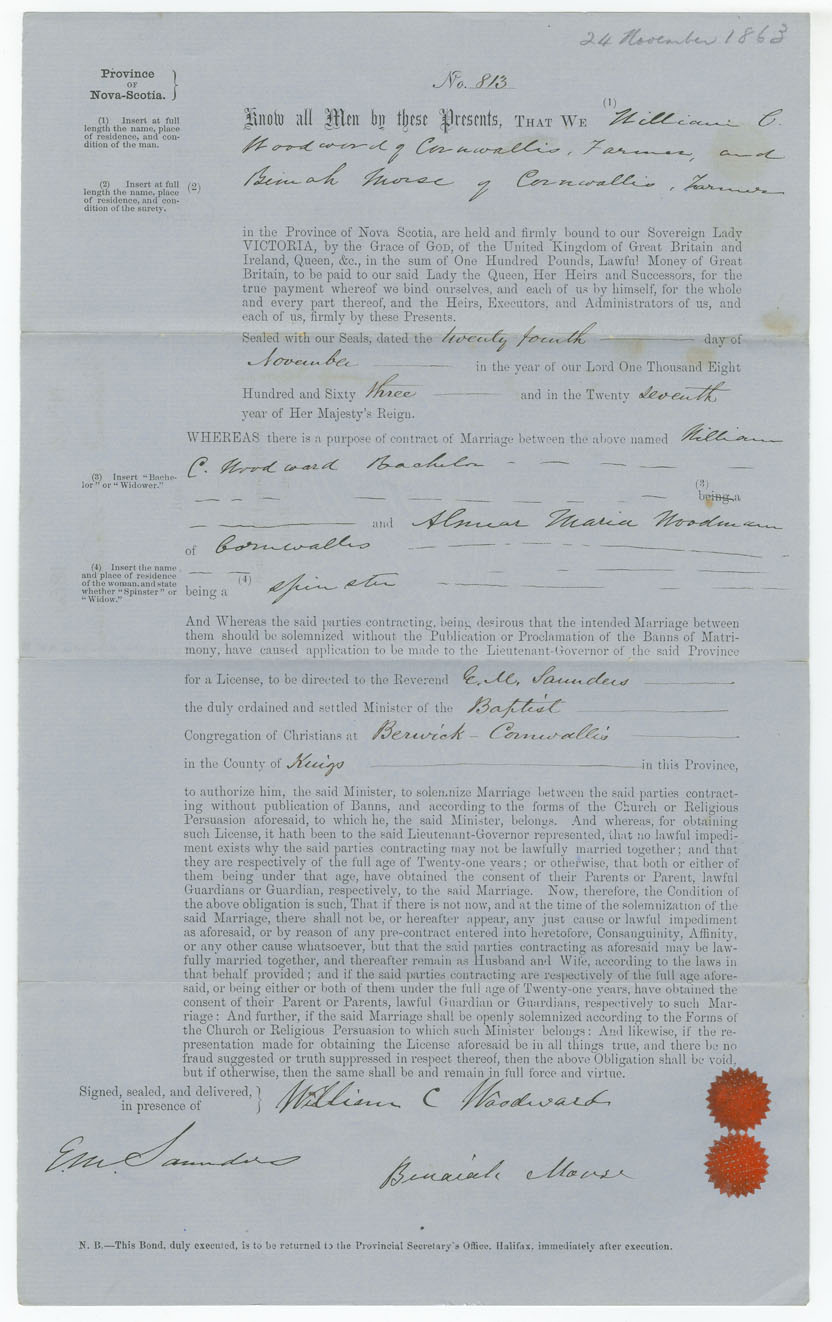 24 November 1863
Province
OF
Nova-Scotia.
No. 813
(1) Insert at full
length the name, place
of residence, and con-
dition of the man.
Know all Men by these Presents, THAT WE (1) William C.
Woodword of Cornwallis, Farmer, and
(2) Insert at full
length the name, place
of residence, and con-
dition of the surety.
(2) Morse of Cornwallis, Farmer
in the Province of Nova Scotia, are held and firmly bound to our Sovereign Lady
VICTORIA, by the Grace of GOD, of the United Kingdom of Great Britain and
Ireland, Queen, &c., in the sum of One Hundred Pounds, Lawful Money of Great
Britain, to be paid to our said Lady the Queen, Her Heirs and Successors, for the
true payment whereof we bind ourselves, and each of us by himself, for the whole
and every part thereof, and the Heirs, Executors, and Administrators of us, and
each of us, firmly by these Presents.
Sealed with our Seals, dated the twenty fourth day of
November in the year of our Lord One Thousand Eight
Hundred and Sixty three and in the Twenty seventh
year of Her Majesty's Reign.
WHEREAS there is a purpose of contract of Marriage between the above named William
C. Woodward Bachelor
(3) Insert "Bache-
lor" or "Widower."
(3)
being a
and Maria Woodman
of Cornwallis
(4) Insert the name
and place of residence
of the woman, and state
whether "Spinster" or
"Widow."
being a (4) spinster
And Whereas the said parties contracting, being desirous that the intended Marriage between
them should be solemnized without the Publication or Proclamation of the Banns of Matri-
mony, have caused application to be made to the Lieutenant-Governor of the said Province
for a License, to be directed to the Reverend E. M. Saunders
the duly ordained and settled Minister of the Baptist
Congregation of Christians at Berwick - Cornwallis
in the County of Kings in this Province,
to authorize him, the said Minister, to solemnize Marriage between the said parties contract-
ing without publication of Banns, and according to the forms of the Church or Religious
Persuasion aforesaid, to which he, the said Minister, belongs. And whereas, for obtaining
such License, it hath been to the said Lieutenant-Governor represented, that no lawful impedi-
ment exists why the said parties contracting may not be lawfully married together; and that
they are respectively of the full age of Twenty-one years; or otherwise, that both or either of
them being under that age, have obtained the consent of their Parents or Parent, lawful
Guardians or Guardian, respectively, to the said Marriage. Now, therefore, the Condition of
the above obligation is such, That if there is not now, and at the time of the solemnization of the
said Marriage, there shall not be, or hereafter appear, any just cause or lawful impediment
as aforesaid, or by reason of any pre-contract entered into heretofore, Consanguinity, Affinity,
or any other cause whatsoever, but that the said parties contracting as aforesaid may be law-
fully married together, and thereafter remain as Husband and Wife, according to the laws in
that behalf provided; and if the said parties contracting are respectively of the full age afore-
said, or being either or both of them under the full age of Twenty-one years, have obtained the
consent of their Parent or Parents, lawful Guardian or Guardians, respectively to such Mar-
riage: And further, if the said Marriage shall be openly solemnized according to the Forms of
the Church or Religious Persuasion to which such Minister belongs: And likewise, if the re-
presentation made for obtaining the License aforesaid be in all things true, and there be no
fraud suggested or truth suppressed in respect thereof, then the above Obligation shall be void,
but if otherwise, then the same shall be and remain in full force and virtue.
Signed, sealed, and delivered,
in presence of
William C Woodward
E.M. Saunders
Benaiah Morse
N. B.—This Bond, duly executed, is to be returned to the Provincial Secretary's Office, Halifax, immediately after execution.